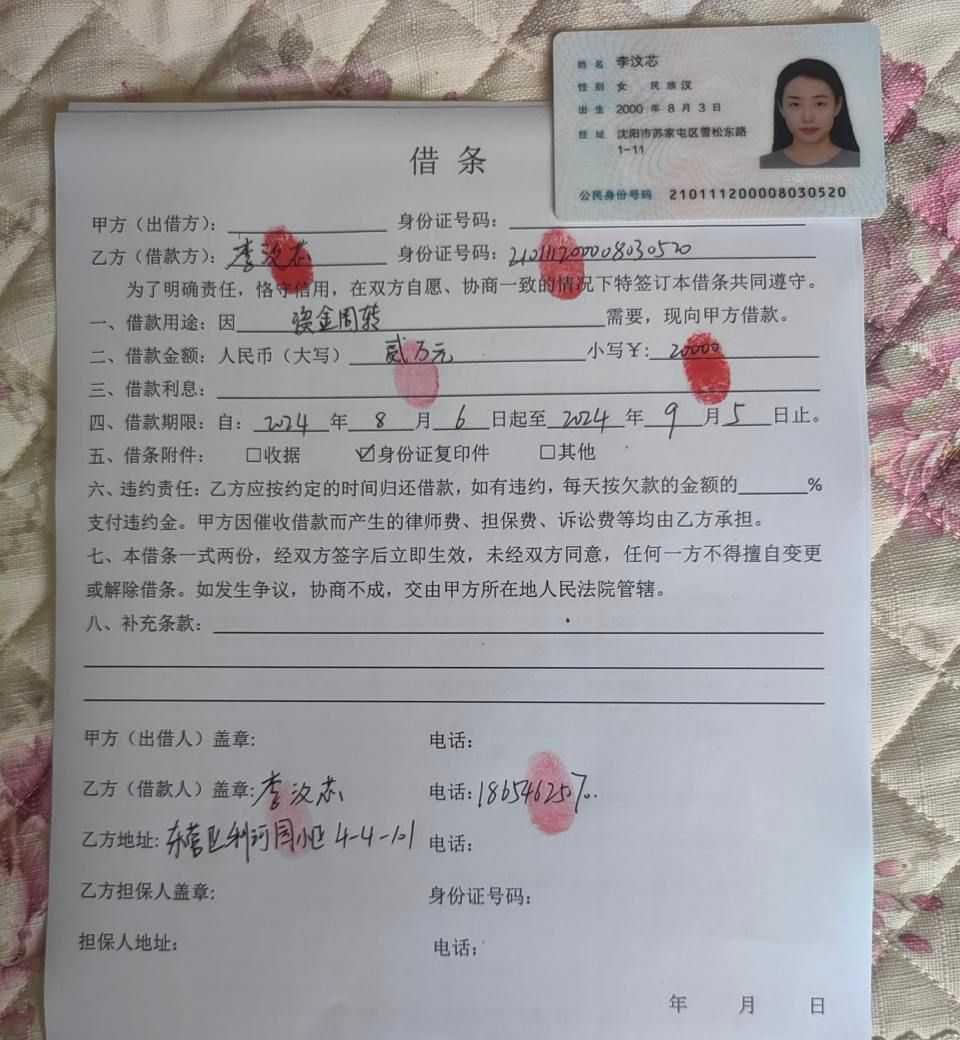 姓名 李汶芯
性别 女 民族 汉
出生 2000 年 8 月 3 日
住址 沈阳市苏家屯区雪松东路
1-11
公民身份号码 210111200008030520
借 条
甲方（出借方）： 身份证号码：
乙方（借款方）：李汶芯 身份证号码：210111200008030520
为了明确责任，恪守信用，在双方自愿、协商一致的情况下特签订本借条共同遵守。
一、借款用途：因 资金周转 需要，现向甲方借款。
二、借款金额：人民币（大写） 贰万元 小写￥: 20000
三、借款利息：
四、借款期限：自：2024 年 8 月 6 日起至 2024 年 9 月 5 日止。
五、借条附件： □收据 ☑身份证复印件 □其他
六、违约责任：乙方应按约定的时间归还借款，如有违约，每天按欠款的金额的______%
支付违约金。甲方因催收借款而产生的律师费、担保费、诉讼费等均由乙方承担。
七、本借条一式两份，经双方签字后立即生效，未经双方同意，任何一方不得擅自变更
或解除借条。如发生争议，协商不成，交由甲方所在地人民法院管辖。
八、补充条款：
甲方（出借人）盖章: 电话：
乙方（借款人）盖章: 李汶芯 电话：
乙方地址: 东营区利河园小区 4-4-101 电话：
乙方担保人盖章: 身份证号码：
担保人地址: 电话：
年 月 日